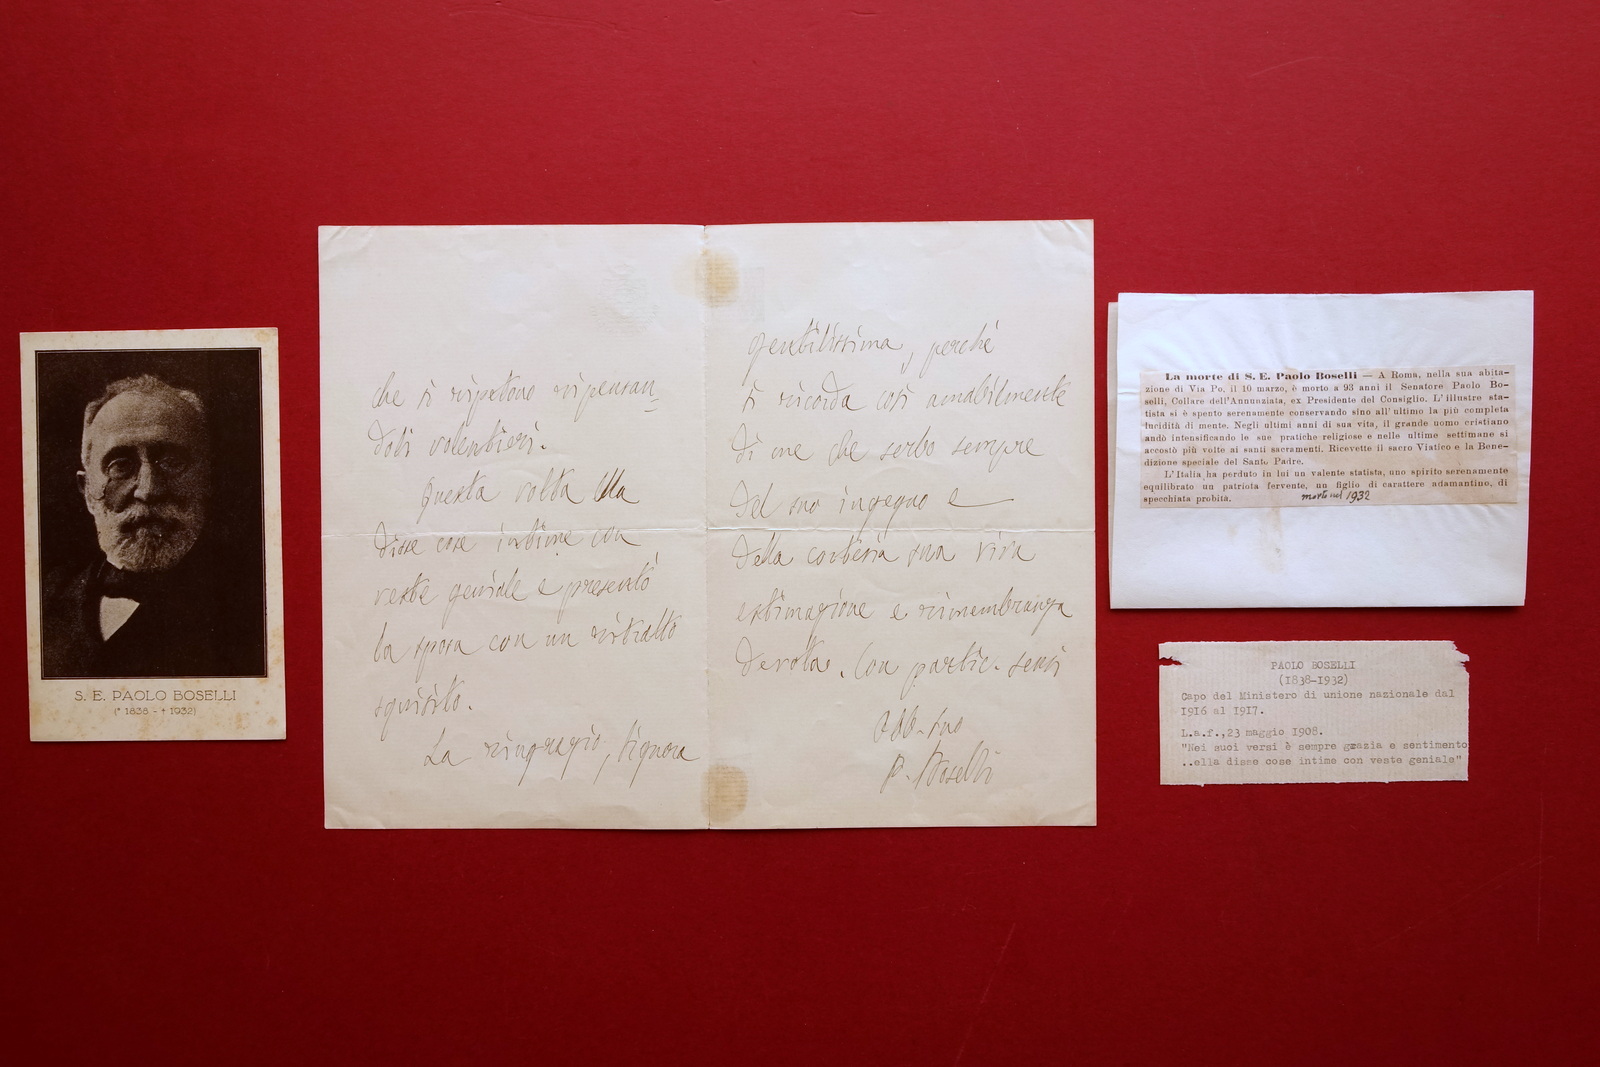 S. E. PAOLO BOSELLI
(* 1838 - † 1932)
che si ripetono ripensan_
doli volentieri.
Questa volta Ella
disse cose intime con
veste geniale e presentò
la sposa con un risalto
squisito.
La ringrazio, Signora
gentilissima, perchè
si ricorda così amabilmente
di me che serbo sempre
del suo ingegno e
della cortesia sua viva
estimazione e rimembranza
devota. Con partic. sensi
Obb. suo
P. Boselli
La morte di S. E. Paolo Boselli — A Roma, nella sua abita-
zione di Via Po, il 10 marzo, è morto a 93 anni il Senatore Paolo Bo-
selli, Collare dell'Annunziata, ex Presidente del Consiglio. L'illustre sta-
tista si è spento serenamente conservando sino all'ultimo la più completa
lucidità di mente. Negli ultimi anni di sua vita, il grande uomo cristiano
andò intensificando le sue pratiche religiose e nelle ultime settimane si
accostò più volte ai santi sacramenti. Ricevette il sacro Viatico e la Bene-
dizione speciale del Santo Padre.
L'Italia ha perduto in lui un valente statista, uno spirito serenamente
equilibrato un patriota fervente, un figlio di carattere adamantino, di
specchiata probità. morto nel 1932
PAOLO BOSELLI
(1838-1932)
Capo del Ministero di unione nazionale dal
1916 al 1917.
L.a.f.,23 maggio 1908.
"Nei suoi versi è sempre grazia e sentimento
..ella disse cose intime con veste geniale"